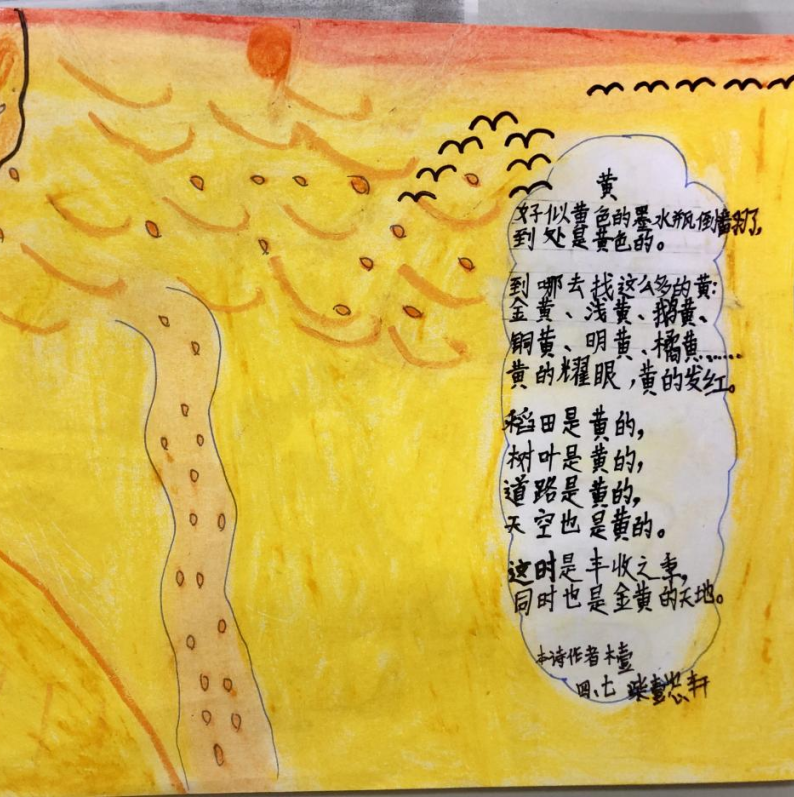 黄
好似黄色的墨水瓶倒撒了,
到处是黄色的。
到哪去找这么多的黄:
金黄、浅黄、鹅黄、
铜黄、明黄、橘黄……
黄的耀眼,黄的发红。
稻田是黄的,
树叶是黄的,
道路是黄的,
天空也是黄的。
这时是丰收之季,
同时也是金黄的天地。
本诗作者木壹
四、七 柴 轩